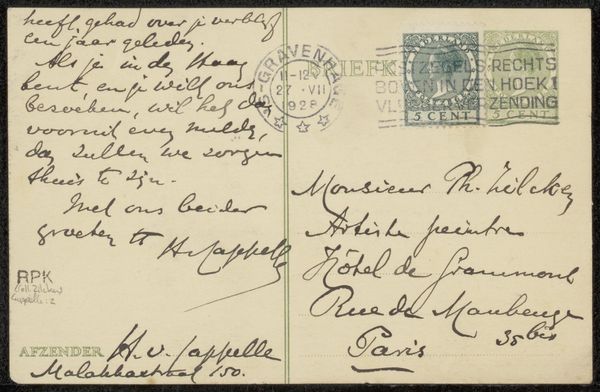 heeft gehad over je verblijf
een jaar geleden.
Als je in den Haag
bent, en je wilt ons
bezoeken, wil het dan
vooruit even melden,
dan zullen we zorgen
thuis te zijn.
Met ons beider
groeten tt
H. v. Cappelle
RPK
Coll. Zilcken
Cappelle: 2
AFZENDER H. v. Cappelle
Malakkastraat 150.
'S-GRAVENHAGE
11-12
27 · VII
1928
BRIEFK
ZEGELS RECHTS
BOVEN IN DEN HOEK!
ZENDING
5 CENT
5 CENT
Monsieur Ph. Zilcken
Artiste peintre
Hôtel de Grammont
Rue de Maubeuge
35 bis
Paris